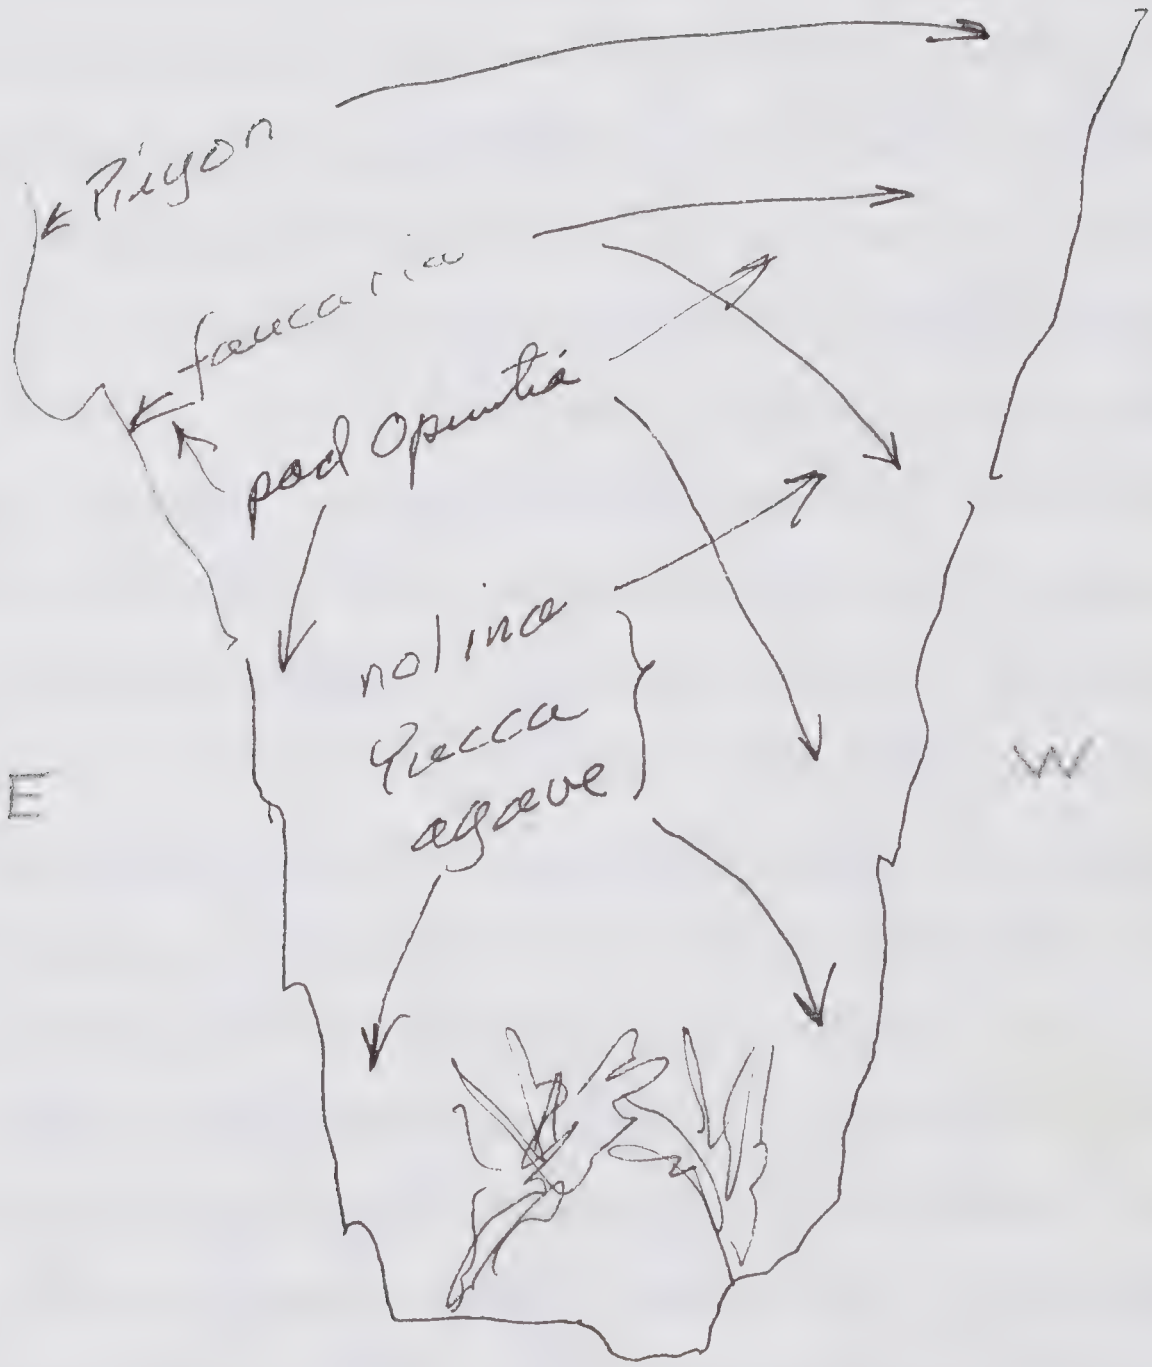 Pinyon
faucaria
pad Opuntia
nolina
Yucca
agave
E
W